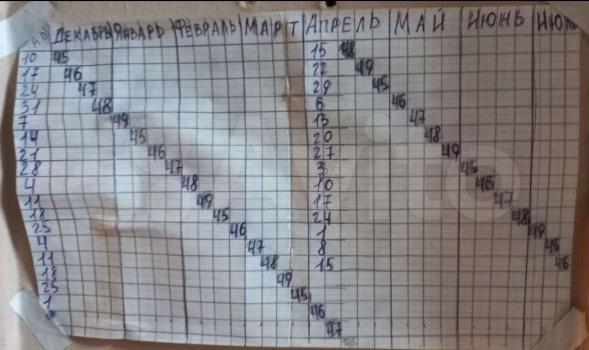 ДЕКАБРЬ ЯНВАРЬ ФЕВРАЛЬ МАРТ АПРЕЛЬ МАЙ ИЮНЬ
10 45 15 48
17 46 22 49
24 47 29 45
31 48 6 46
7 49 13 47
14 45 20 48
21 46 27 49
28 47 3 45
4 48 10 46
11 49 17 47
18 45 24 48
25 46 1 49
4 47 8 45
11 48 15 46
18 49
25 45
1 46
47
Avito